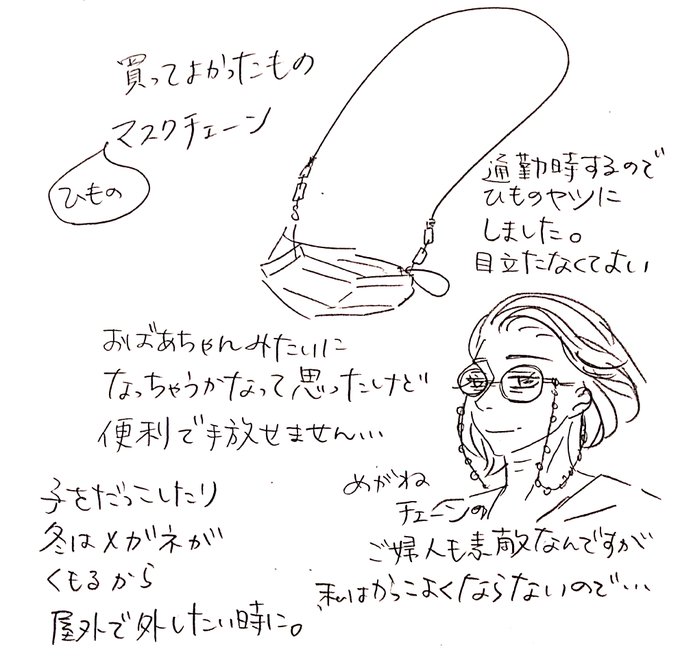 買ってよかったもの
マスクチェーン
ひもの
通勤時するので
ひものヤツに
しました。
目立たなくてよい
おばあちゃんみたいに
なっちゃうかなって思ったけど
便利で手放せません…
子をだっこしたり
冬はメガネが
くもるから
屋外で外したい時に。
めがね
チェーンの
ご婦人も素敵なんですが
私はかっこよくならないので…